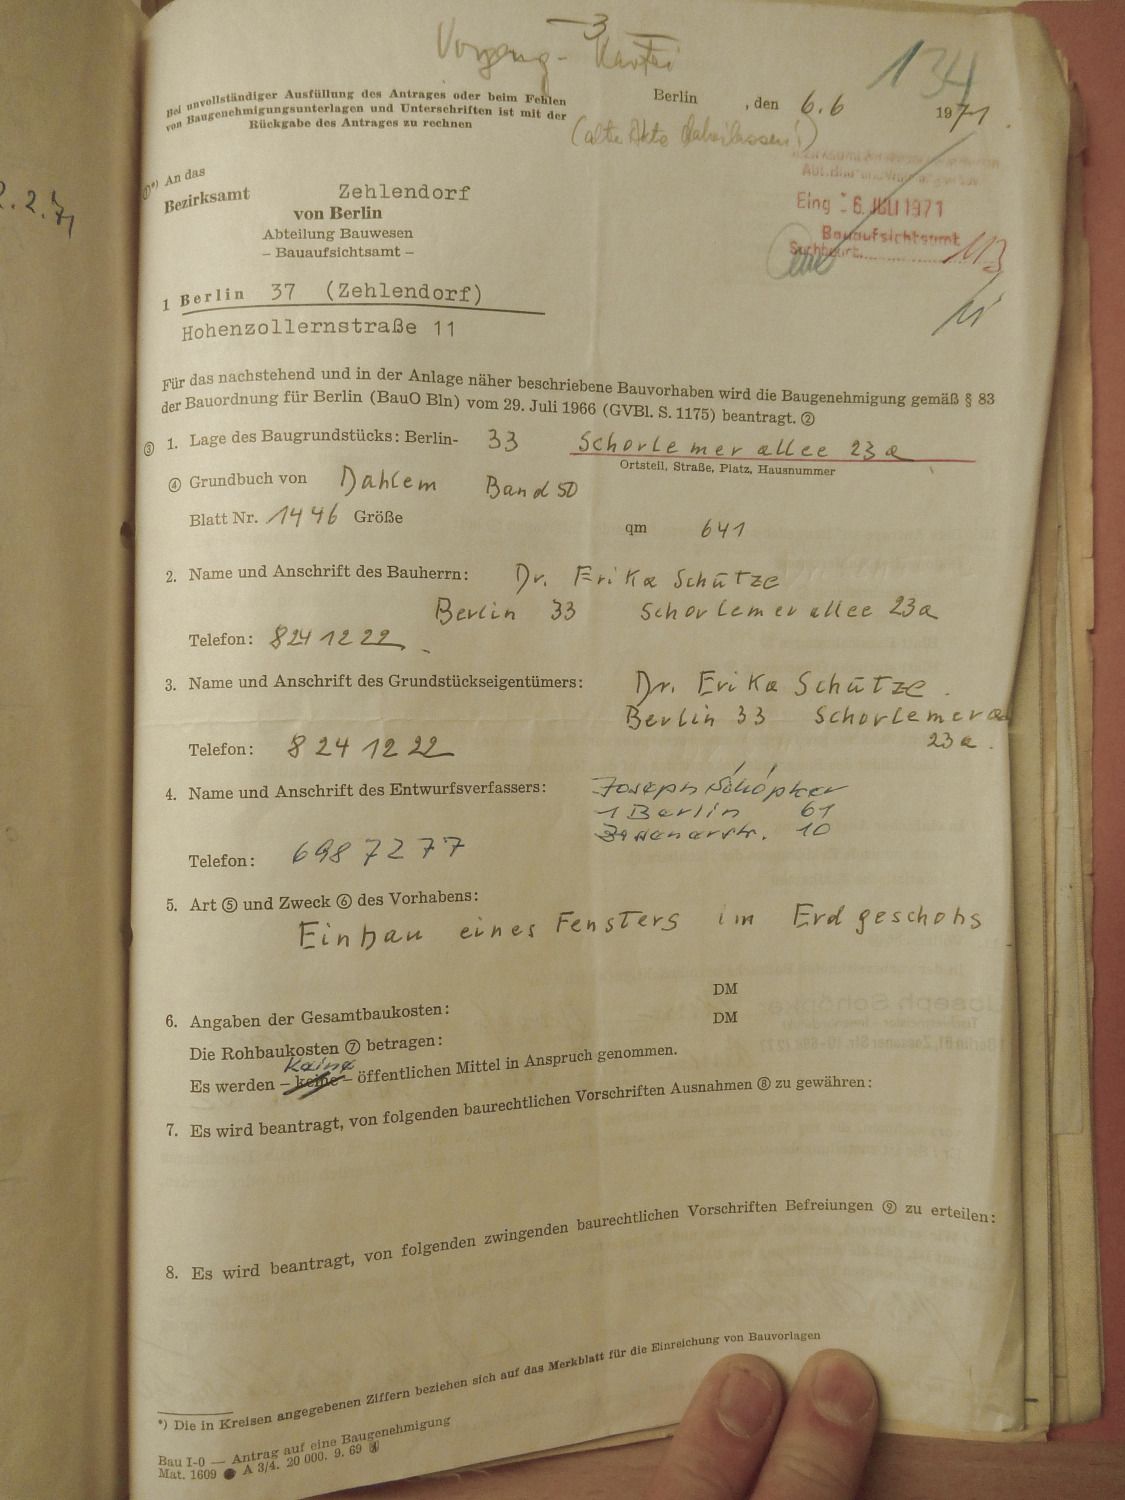 3
Vorgang - Kartei
134
Bei unvollständiger Ausfüllung des Antrages oder beim Fehlen
von Baugenehmigungsunterlagen und Unterschriften ist mit der
Rückgabe des Antrages zu rechnen
Berlin , den 6.6 1971
(alte Akte
2.2.71
①*) An das
Bezirksamt Zehlendorf
von Berlin
Abteilung Bauwesen
– Bauaufsichtsamt –
Eing - 6. JULI 1971
Bauaufsichtsamt
113
1 Berlin 37 (Zehlendorf)
Hohenzollernstraße 11
Für das nachstehend und in der Anlage näher beschriebene Bauvorhaben wird die Baugenehmigung gemäß § 83
der Bauordnung für Berlin (BauO Bln) vom 29. Juli 1966 (GVBl. S. 1175) beantragt. ②
③ 1. Lage des Baugrundstücks: Berlin- 33 Schorlemerallee 23a
Ortsteil, Straße, Platz, Hausnummer
④ Grundbuch von Dahlem Band 50
Blatt Nr. 1446 Größe qm 641
2. Name und Anschrift des Bauherrn: Dr. Erika Schütze
Berlin 33 Schorlemerallee 23a
Telefon: 824 12 22
3. Name und Anschrift des Grundstückseigentümers: Dr. Erika Schütze
Berlin 33 Schorlemera
23a.
Telefon: 824 12 22
4. Name und Anschrift des Entwurfsverfassers: Joseph Schöpker
1 Berlin 61
10
Telefon: 698 72 77
5. Art ⑤ und Zweck ⑥ des Vorhabens:
Einbau eines Fensters im Erdgeschohs
6. Angaben der Gesamtbaukosten: DM
Die Rohbaukosten ⑦ betragen: DM
Keine
Es werden – keine – öffentlichen Mittel in Anspruch genommen.
7. Es wird beantragt, von folgenden baurechtlichen Vorschriften Ausnahmen ⑧ zu gewähren:
8. Es wird beantragt, von folgenden zwingenden baurechtlichen Vorschriften Befreiungen ⑨ zu erteilen:
*) Die in Kreisen angegebenen Ziffern beziehen sich auf das Merkblatt für die Einreichung von Bauvorlagen
Bau I-0 — Antrag auf eine Baugenehmigung
Mat. 1609 A 3/4. 20 000. 9. 69